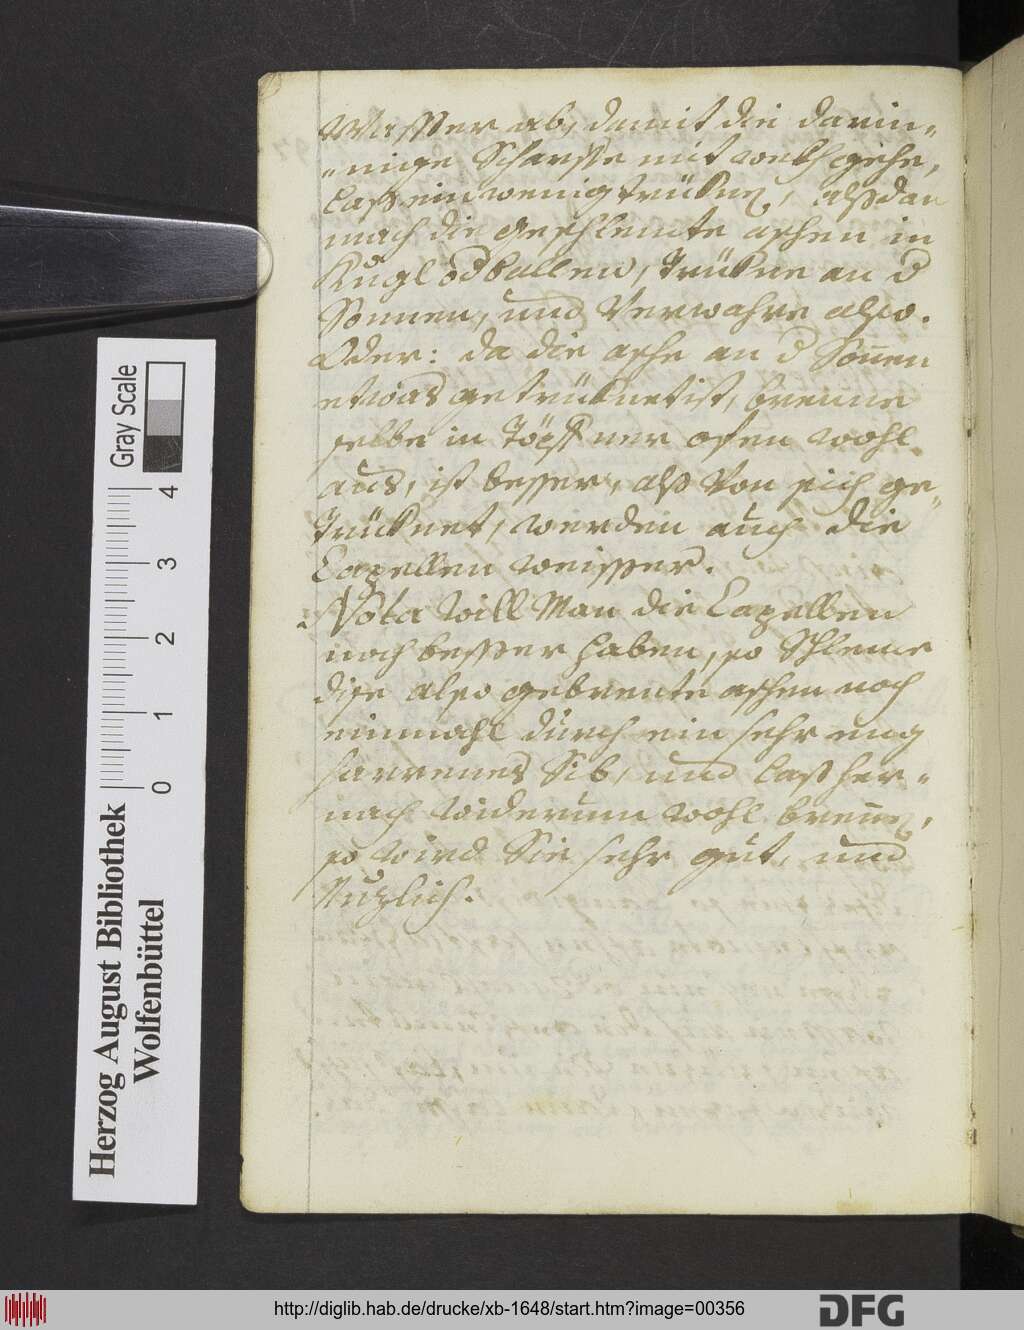 Wasser ab, damit die darin„
„nige Scharffe mit wekh gehe,
Lass ein wenig trükn, alssdan
mach die geschlemte aschen in
Kugl od ballen, Trükne an d
Sonnen, und Verwahre also.
Oder: da die asche an d Sonnen
etwas getrüknet ist, brenne
selbe in Töpffner ofen wohl
aus, ist besser, alss Von sich ge„
Trüknet, werden auch die
Capellen weisser.
Nota Will Man die Capellen
noch besser haben, so Schleme
dise also gebrente aschen noch
einmahl durch ein sehr eng
harrenes Sib, und Lass her„
nach widerumb wohl brenn,
so wird Sie sehr gut, und
Nuzlich.
Gray Scale
4
3
2
1
0
Herzog August Bibliothek
Wolfenbüttel
http://diglib.hab.de/drucke/xb-1648/start.htm?image=00356
DFG